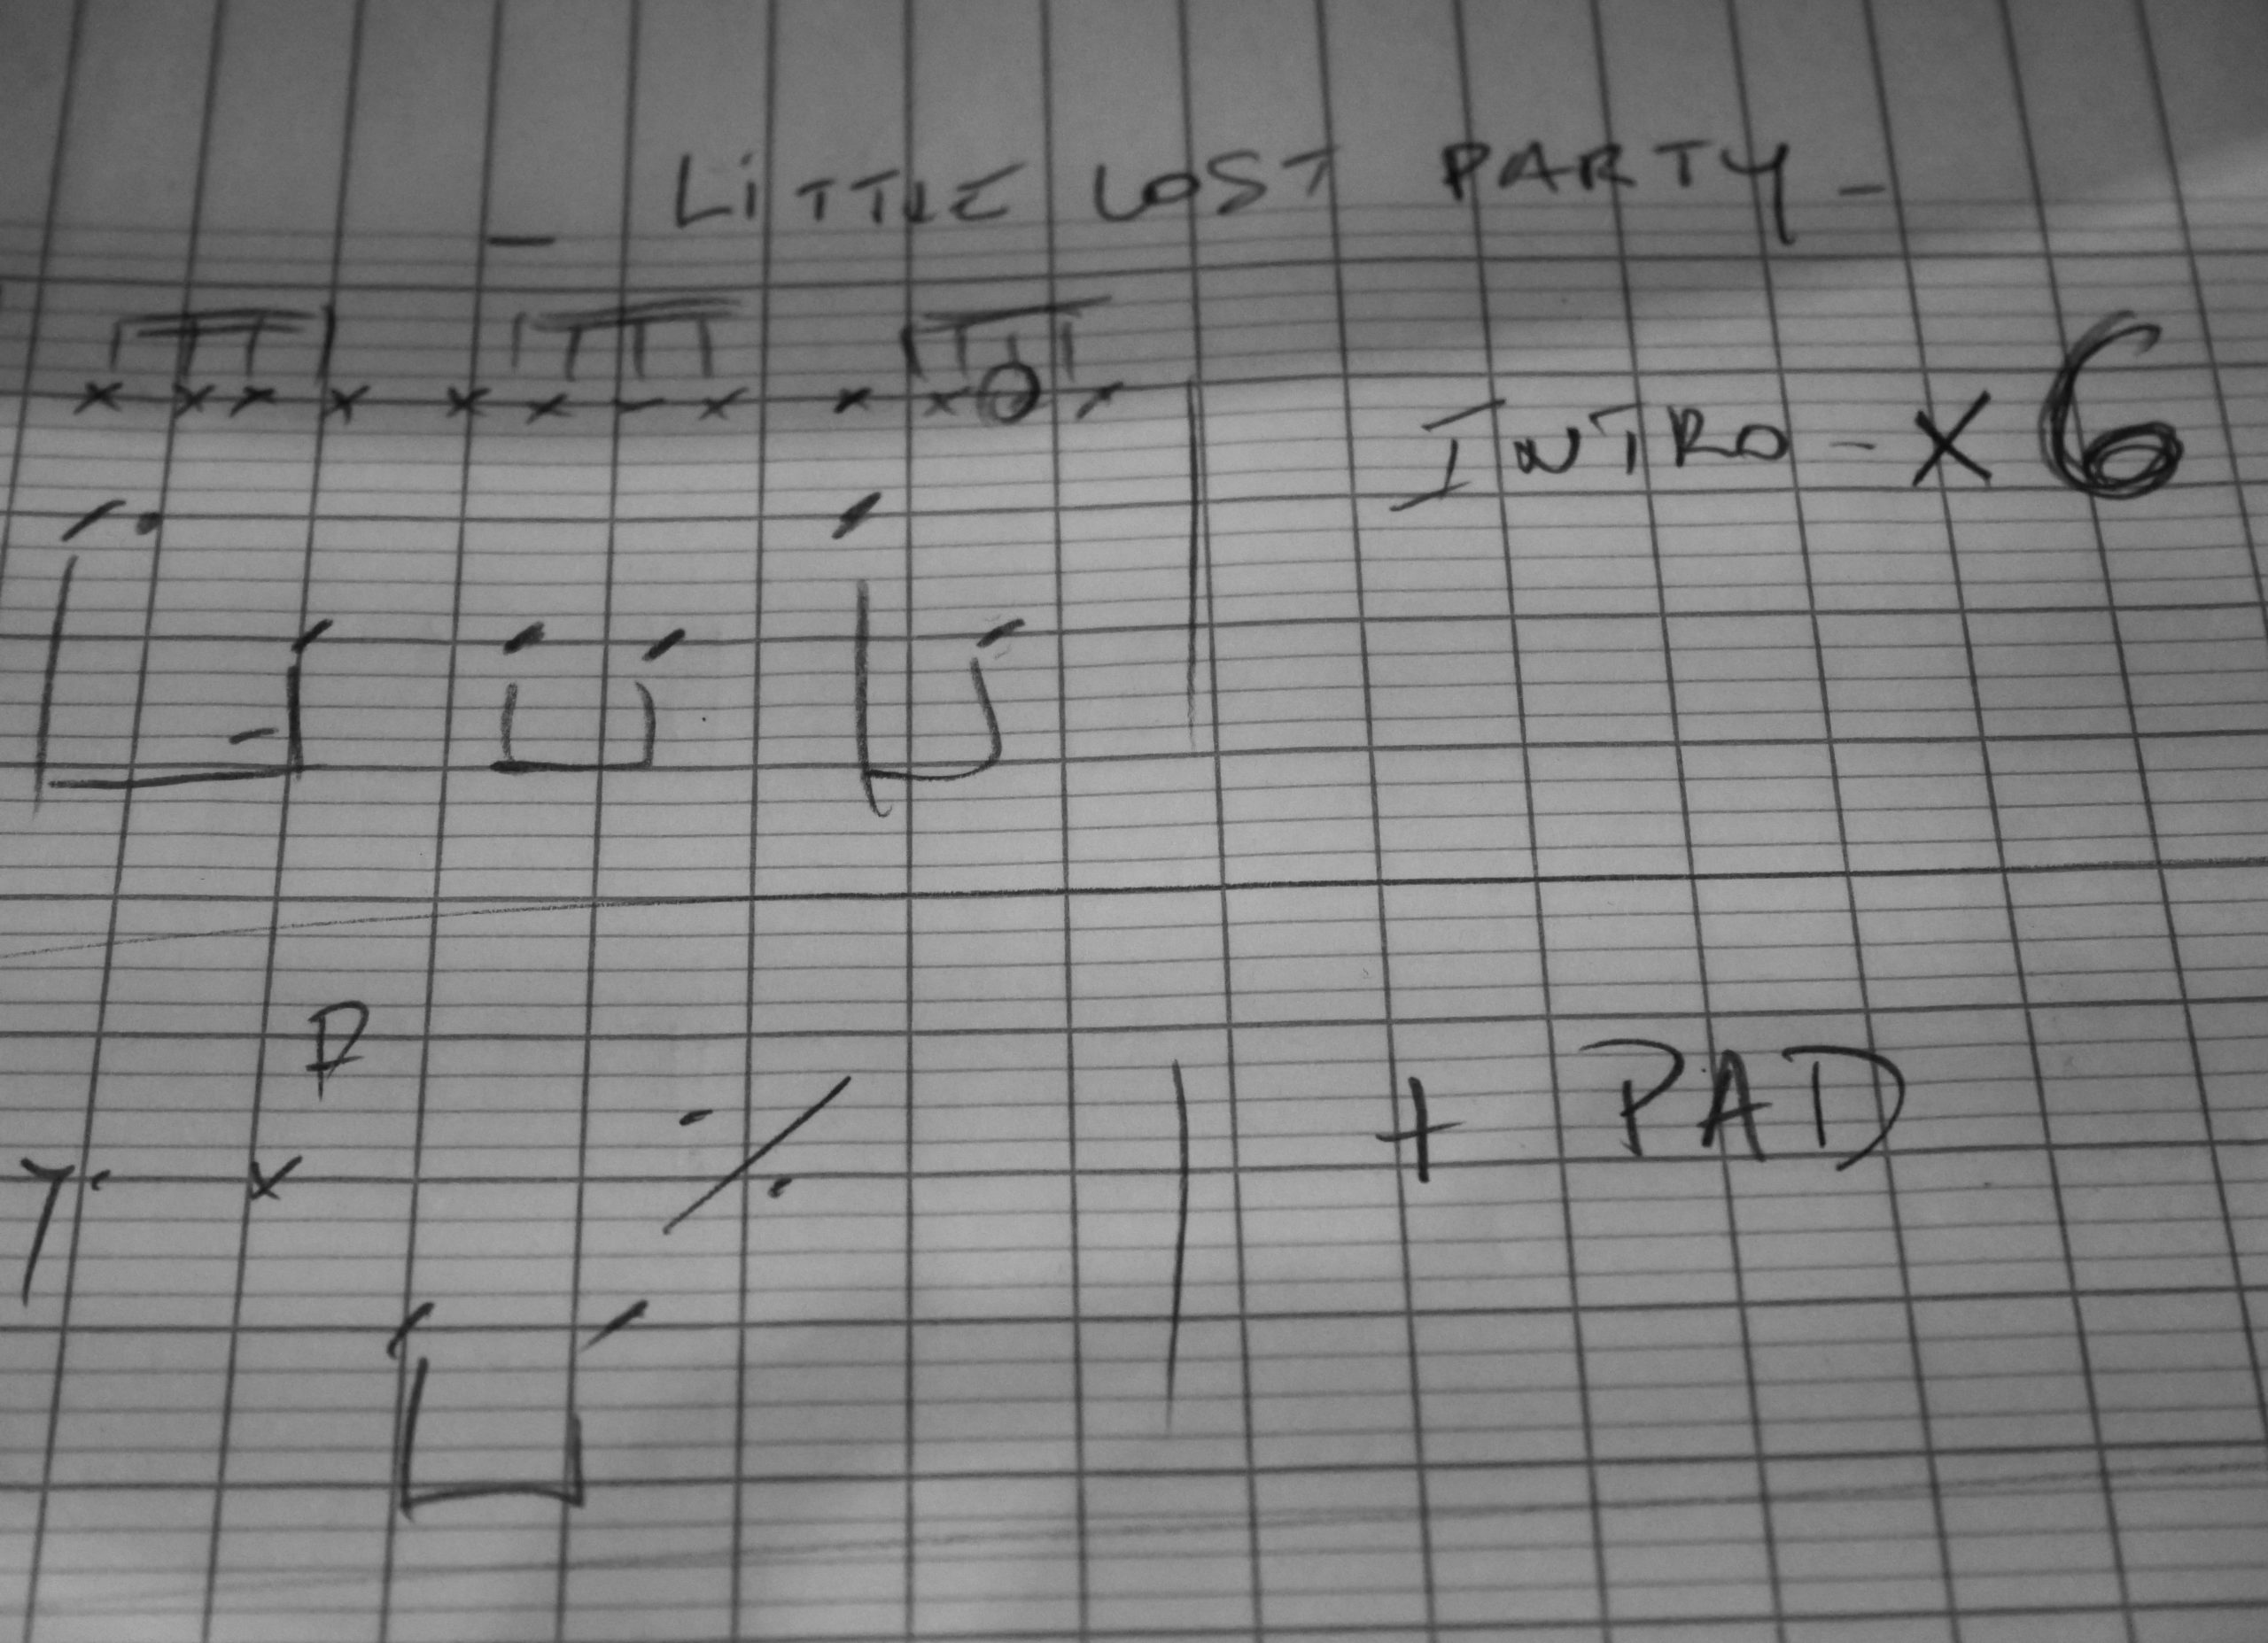 - LiTTLE LOST PARTY -
INTRO - x 6
+ PAD